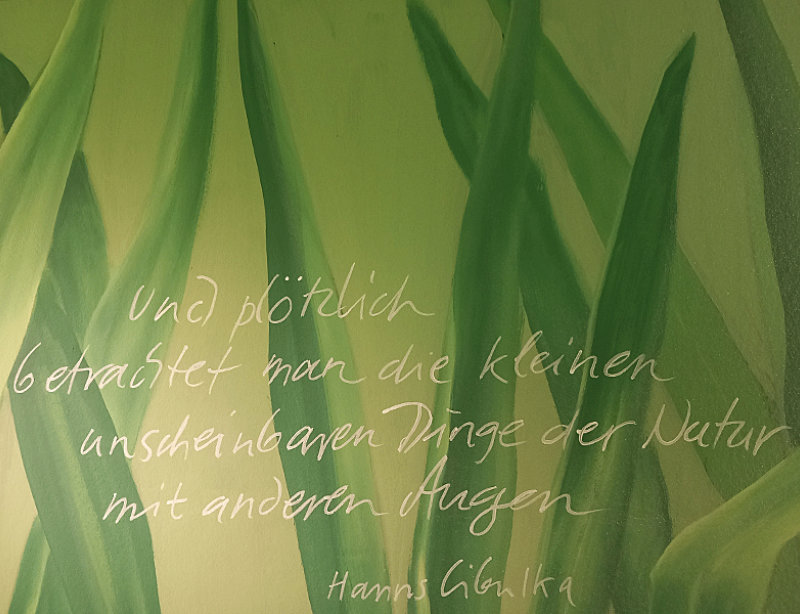 Und plötzlich
betrachtet man die kleinen
unscheinbaren Dinge der Natur
mit anderen Augen
Hanns Cibulka